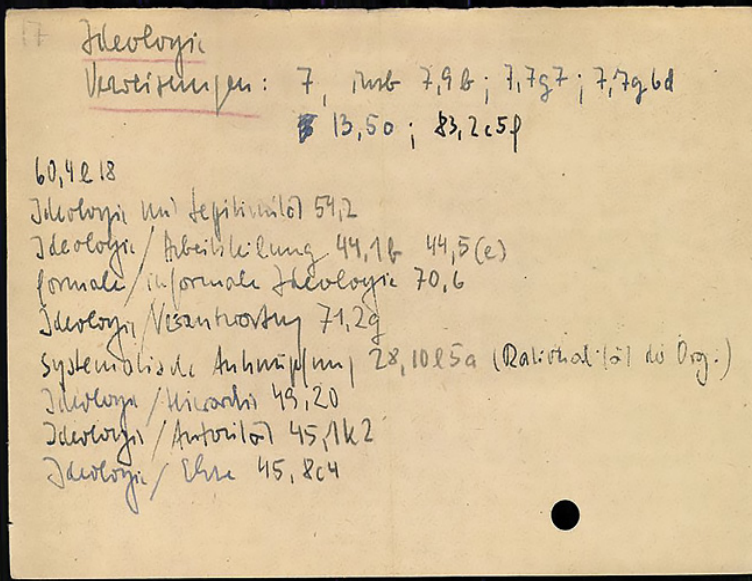 17 Ideologie
Verweisungen: 7, insb 7,9b; 7,7g7; 7,7g6d
13,5o; 83,2c5f
60,4l18
Ideologie und Legitimität 54,2
Ideologie/Arbeitsteilung 44,1b 44,5(e)
formale/informale Ideologie 70,6
Ideologie/Verantwortung 71,2g
Systematische Anknüpfung 28,10l5a (Rationalität der Org.)
Ideologie/Hierarchie 49,20
Ideologie/Autorität 45,1k2
Ideologie/ 45,8c4